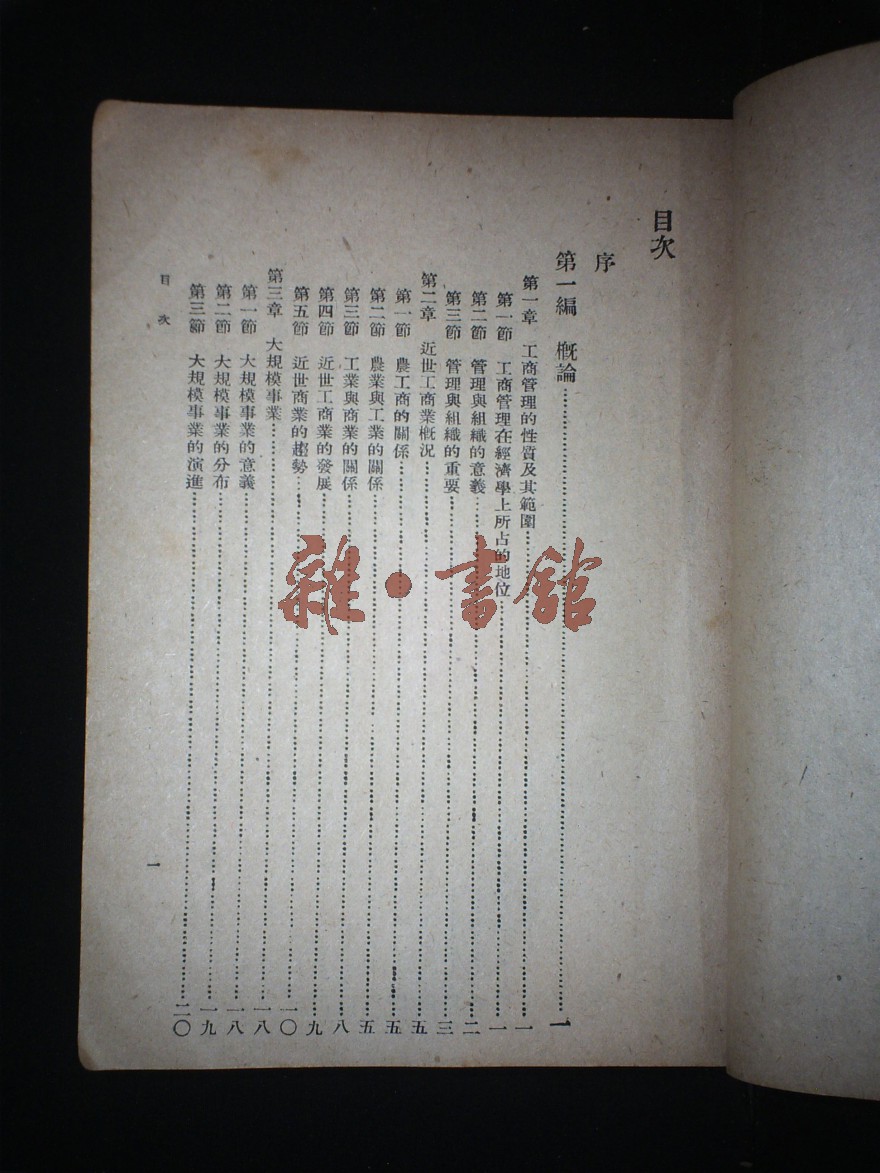 目次
序
第一編 概論……一
第一章 工商管理的性質及其範圍……一
第一節 工商管理在經濟學上所占的地位……一
第二節 管理與組織的意義……二
第三節 管理與組織的重要……三
第二章 近世工商業概況……五
第一節 農工商的關係……五
第二節 農業與工業的關係……五
第三節 工業與商業的關係……八
第四節 近世工商業的發展……九
第五節 近世商業的趨勢……一〇
第三章 大規模事業……一八
第一節 大規模事業的意義……一八
第二節 大規模事業的分布……一九
第三節 大規模事業的演進……二〇
目次
一
雜·書館